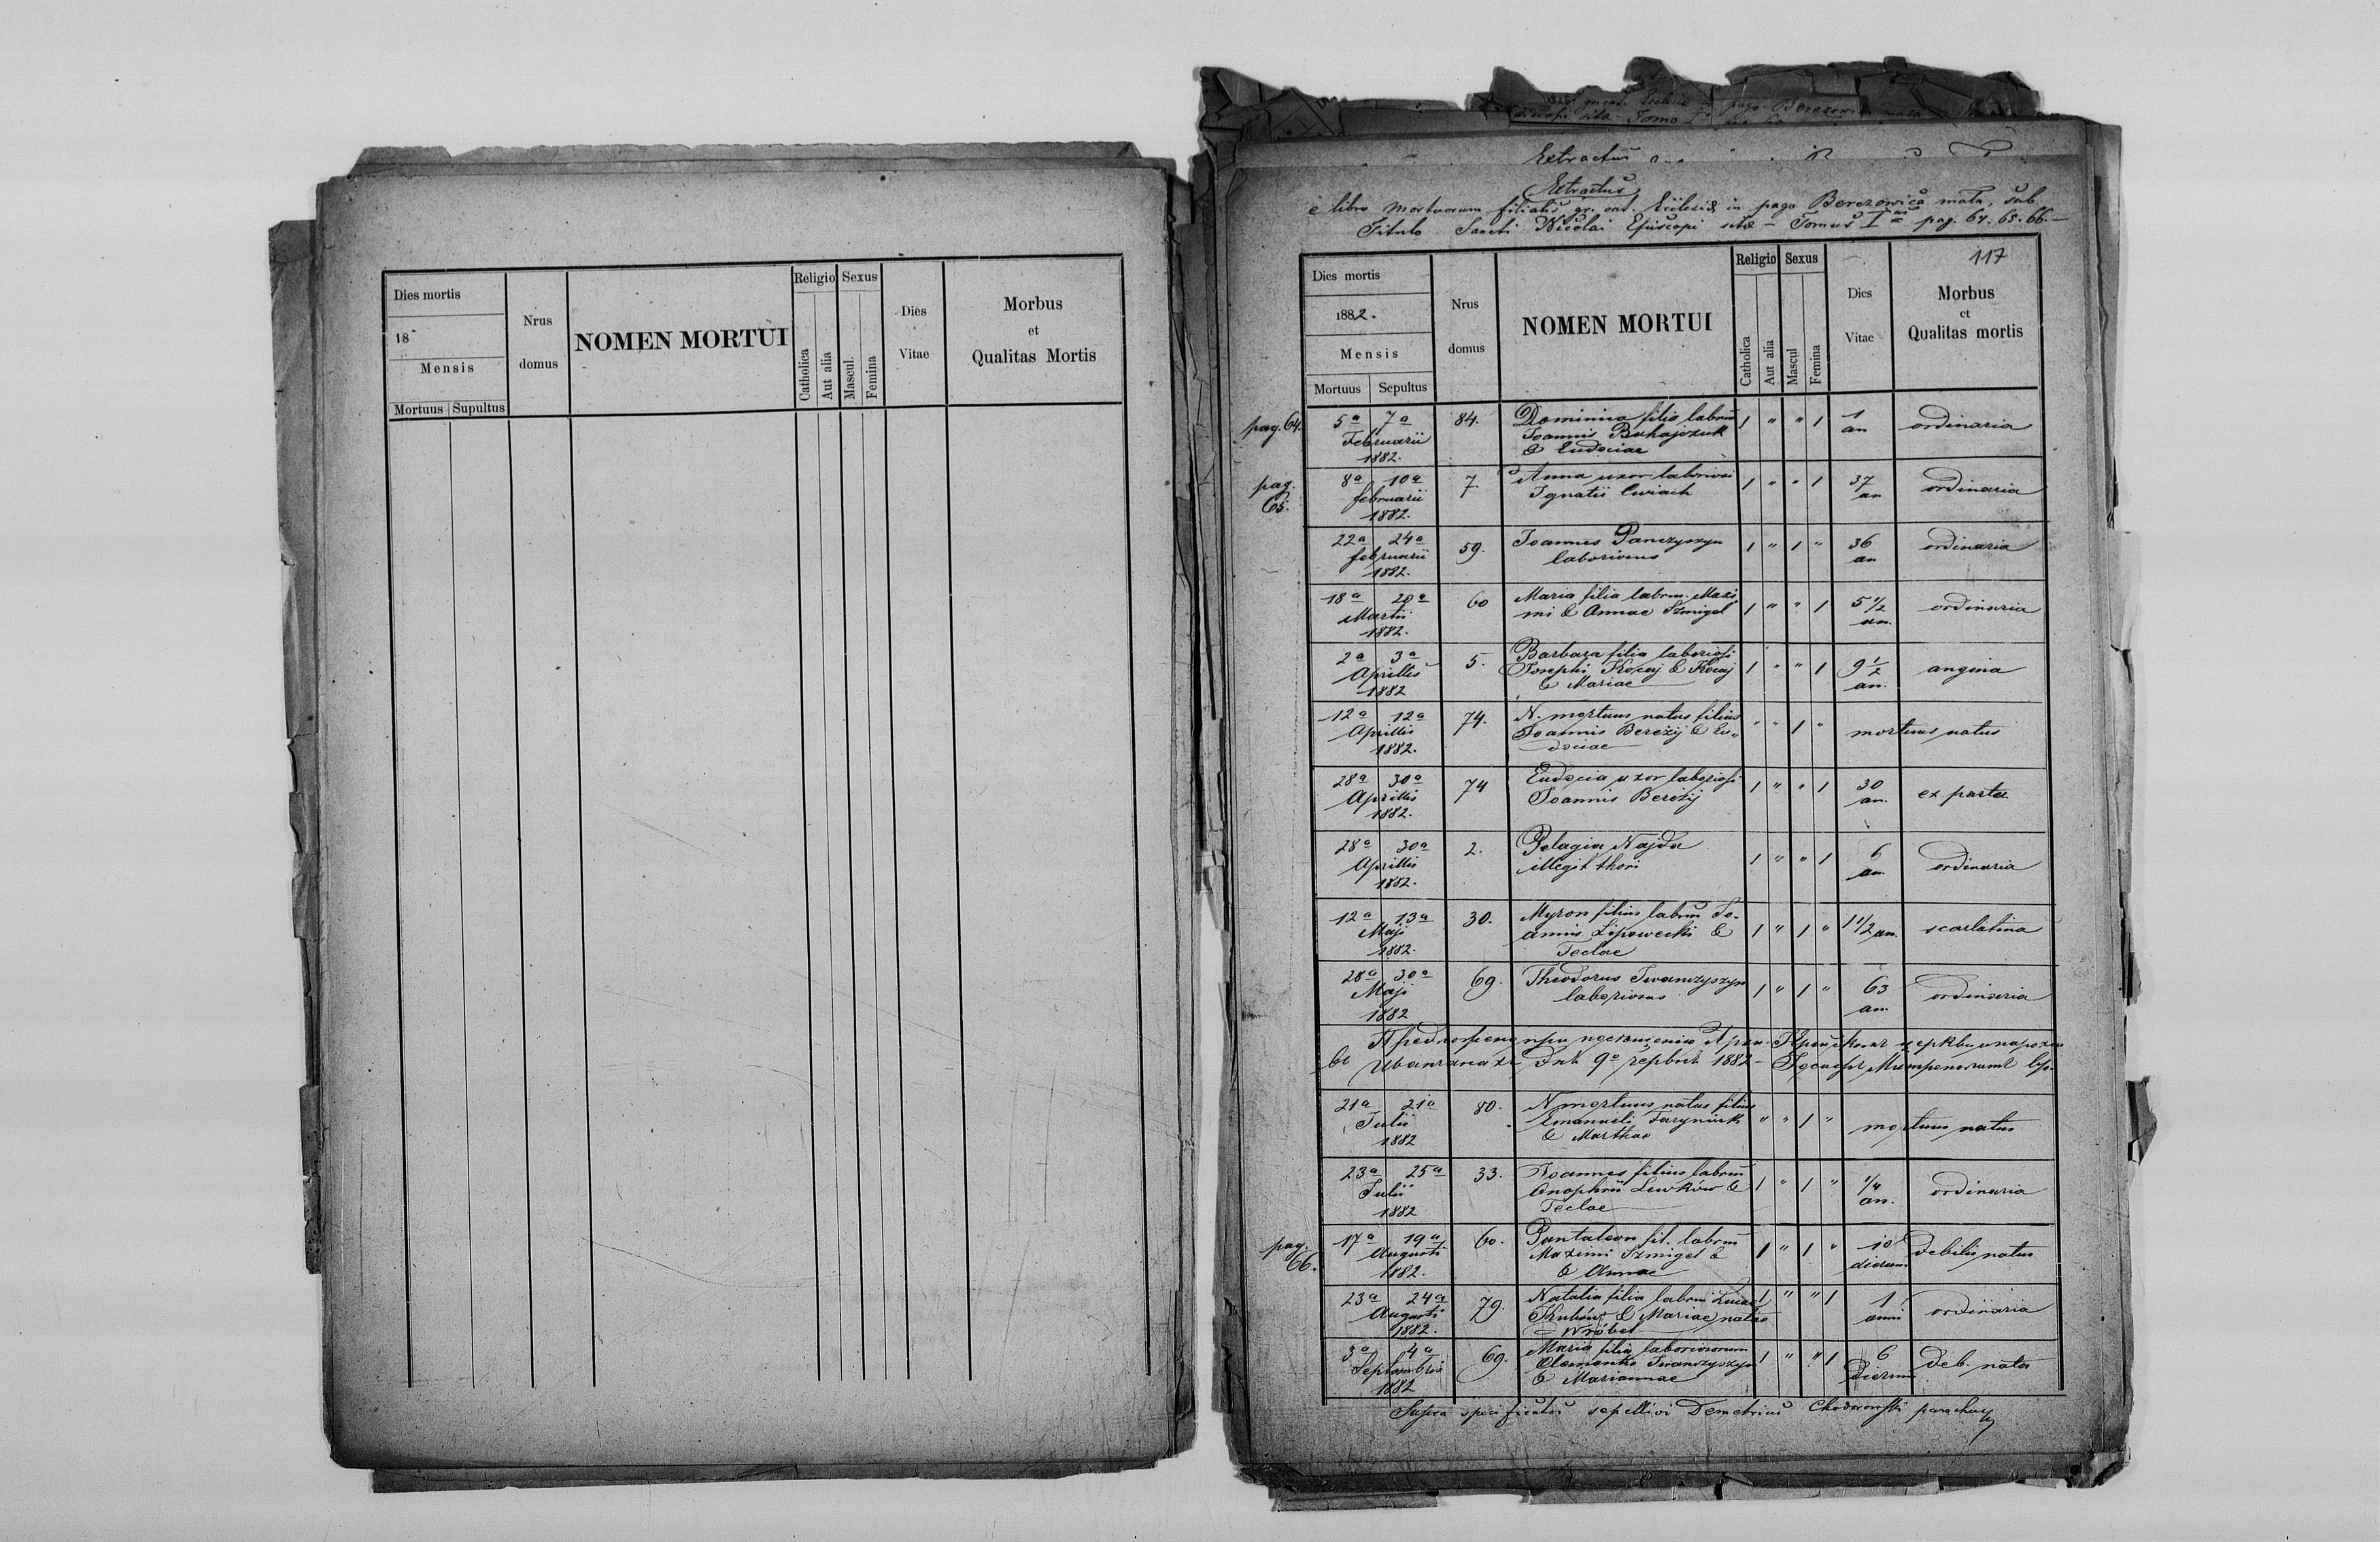 Dies mortis
18
Mensis
Mortuus Supultus
Nrus
domus
NOMEN MORTUI
Religio Sexus
Catholica
Aut alia
Mascul.
Femina
Dies
Vitae
Morbus
et
Qualitas Mortis
Extractus
Extractus
e libro Mortuorum filialis gr. cat. Ecclesiae in pago Berezowica mała, sub
Titulo Sancti Nicolai Episcopi sitae - Tomus I pag. 64. 65. 66. -
117
Dies mortis
1882.
Mensis
Mortuus Sepultus
Nrus
domus
NOMEN MORTUI
Religio Sexus
Catholica
Aut alia
Mascul
Femina
Dies
Vitae
Morbus
et
Qualitas mortis
pag. 64. 5a 7a 84. Dominica filia labrm 1 " " 1 1 ordinaria
Februarii Joannis an
1882. & Eudociae
pag. 8a 10a 7. Anna uxor laboriosi 1 " " 1 37 ordinaria
65. februarii Ignatii an
1882.
22a 24a 59. Joannes Panczyszyn 1 " 1 " 36 ordinaria
februarii laboriosus an
1882.
18a 20a 60 Maria filia labrm. Maxi 1 " " 1 5 1/2 ordinaria
Martii mi & Annae Szmigel an.
1882.
2a 3a 5. Barbara filia laboriosi 1 " " 1 9 1/2 angina
Aprillis Josephi Kocaj & Kocaj an.
1882 & Mariae
12a 12a 74. N. mortuus natus filius " " 1 " mortuus natus
Aprillis Joannis Bereżij & Eu„
1882. dociae
28a 30a 74 Eudocia uxor laboriosi 1 " " 1 30 ex partu
Aprillis Joannis Bereżij an.
1882.
28a 30a 2. Pelagia Najda 1 " " 1 6 ordinaria
Aprillis illegit thori an.
1882.
12a 13a 30. Myron filius labrm Jo- 1 " 1 " 1 1/2 an. scarlatina
Maji annis Lipowecki &
1882. Teclae
28a 30a 69. Theodorus Iwanczyszyn 1 " 1 " 63 ordinaria
Maji laboriosus an
1882
1882
21a 21a 80. N mortuus natus filius " " 1 " mortuus natus
Julii Emanueli
1882 & Marthae
23a 25a 33. Joannes filius labrm 1 " 1 " 1/4 ordinaria
Julii Onophrii Lewków & an.
1882 Teclae
pag. 17a 19a 60. Pantaleon fil. labrm 1 " 1 " 10 debilis natus
66. Augusti Maximi Szmigel & dierum
1882. & Annae
23a 24a 79. Natalia filia labrm Lucae 1 " " 1 1 ordinaria
Augusti & Mariae natae anni
1882. Wróbel
3a 4a 69. Maria filia laboriosorum 1 " " 1 6 deb. nata
Septembris Clementis Iwanczyszyn dierum
1882 & Mariannae
Supra specificatos sepellivi Demetrius Chodorowski parochus